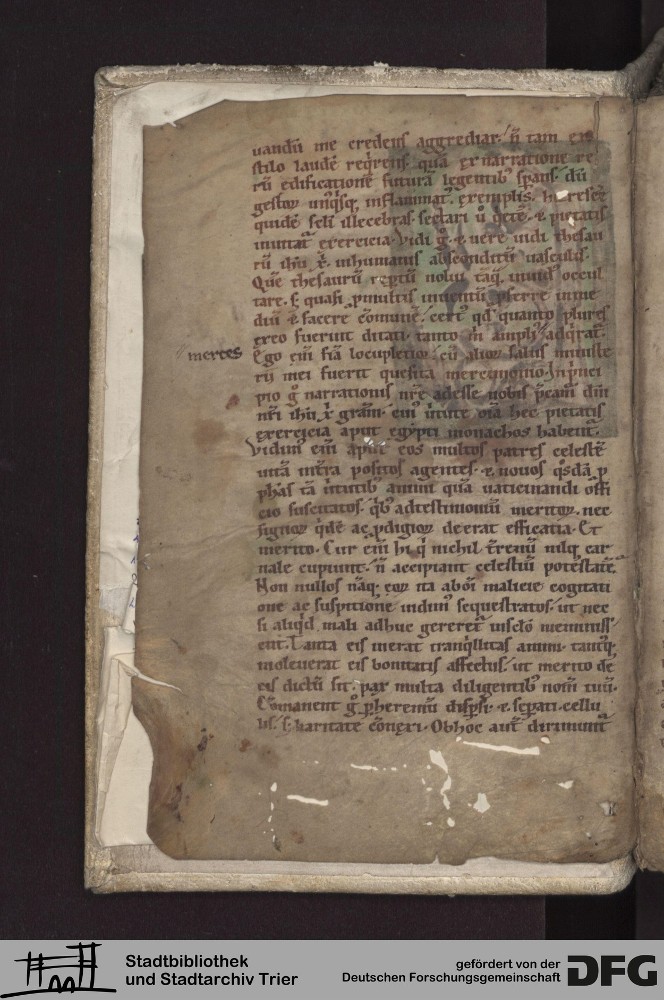 uandū me credens aggrediar. n̄ tam ex
stilo laudē req̇rens. quā ex narratione re
rū edificationē futurā legentib; sꝑans. dū
gestoꝝ unq̇sq; inflammat᷑. exemplis.
quidē seli̅ illecebras. sectari ů ꝗetē. ⁊ pietatis
inuitat᷑ exercicia. Vidi g̊. ⁊ uere uidi thesau
rū ihū x̄. inhumanis absconditū uasculis.
Quē thesaurū reꝑtū nolui tāq̄. inuid᷒ occul
tare. s; quasi ꝓmultis inuentū ꝓferre inme
diū ⁊ facere cōmunē. cert᷒ qd̄ quanto plures
exeo fuerint ditati. tanto m̄ ampli᷒ adq̇rat᷑.
Ego eni̅ fiā locupletior. cū alioꝝ salus ministe
// merces
rii mei fuerit quesita mercimonio. In ṗnci
pio g̊ narrationis nr̄e adesse nobis p̄cam̄ dn̄i
nr̄i ihū x̄ grām. eius uirtute oīa hec pietatis
exercicia aput egypti monachos habent᷑.
Vidim᷒ eni̅ aput eos multos patres celestē
uitā int̄ra positos agentes. ⁊ nouos q̇sdā ꝓ
phās tā uirtutib; animi quā uaticinandi offi
cio suscitatos. q̇b; adtestimoniū meritoꝝ. nec
signoꝝ q̇dē ac ꝓdigioꝝ deerat efficatia. Et
merito. Cur eni̅ hi q̇ nichil t̄renū nilq; car
nale cupiunt. n̄ accipiant celestiū potestatē.
Non nullos nāq; eoꝝ ita ab om̄i malicie cogitati
one ac suspitione uidim᷒ sequestratos. ut nec
si aliq̇d mali adhuc gereret᷑ insc̄lo meminiss
ent. Tanta eis inerat tranq̇llitas animi. tant᷒q;
inoleuerat eis bonitatis affectus. ut merito de
eis dictū sit. pax multa diligentib; nom̄ tuū.
Cōmanent g̊ ꝑ heremū disꝑsi. ⁊ seꝑati cellu
lis. s; karitate cōnexi. Obhoc aut̄ dirimunt᷑
Stadtbibliothek
und Stadtarchiv Trier
gefördert von der
Deutschen Forschungsgemeinschaft
DFG